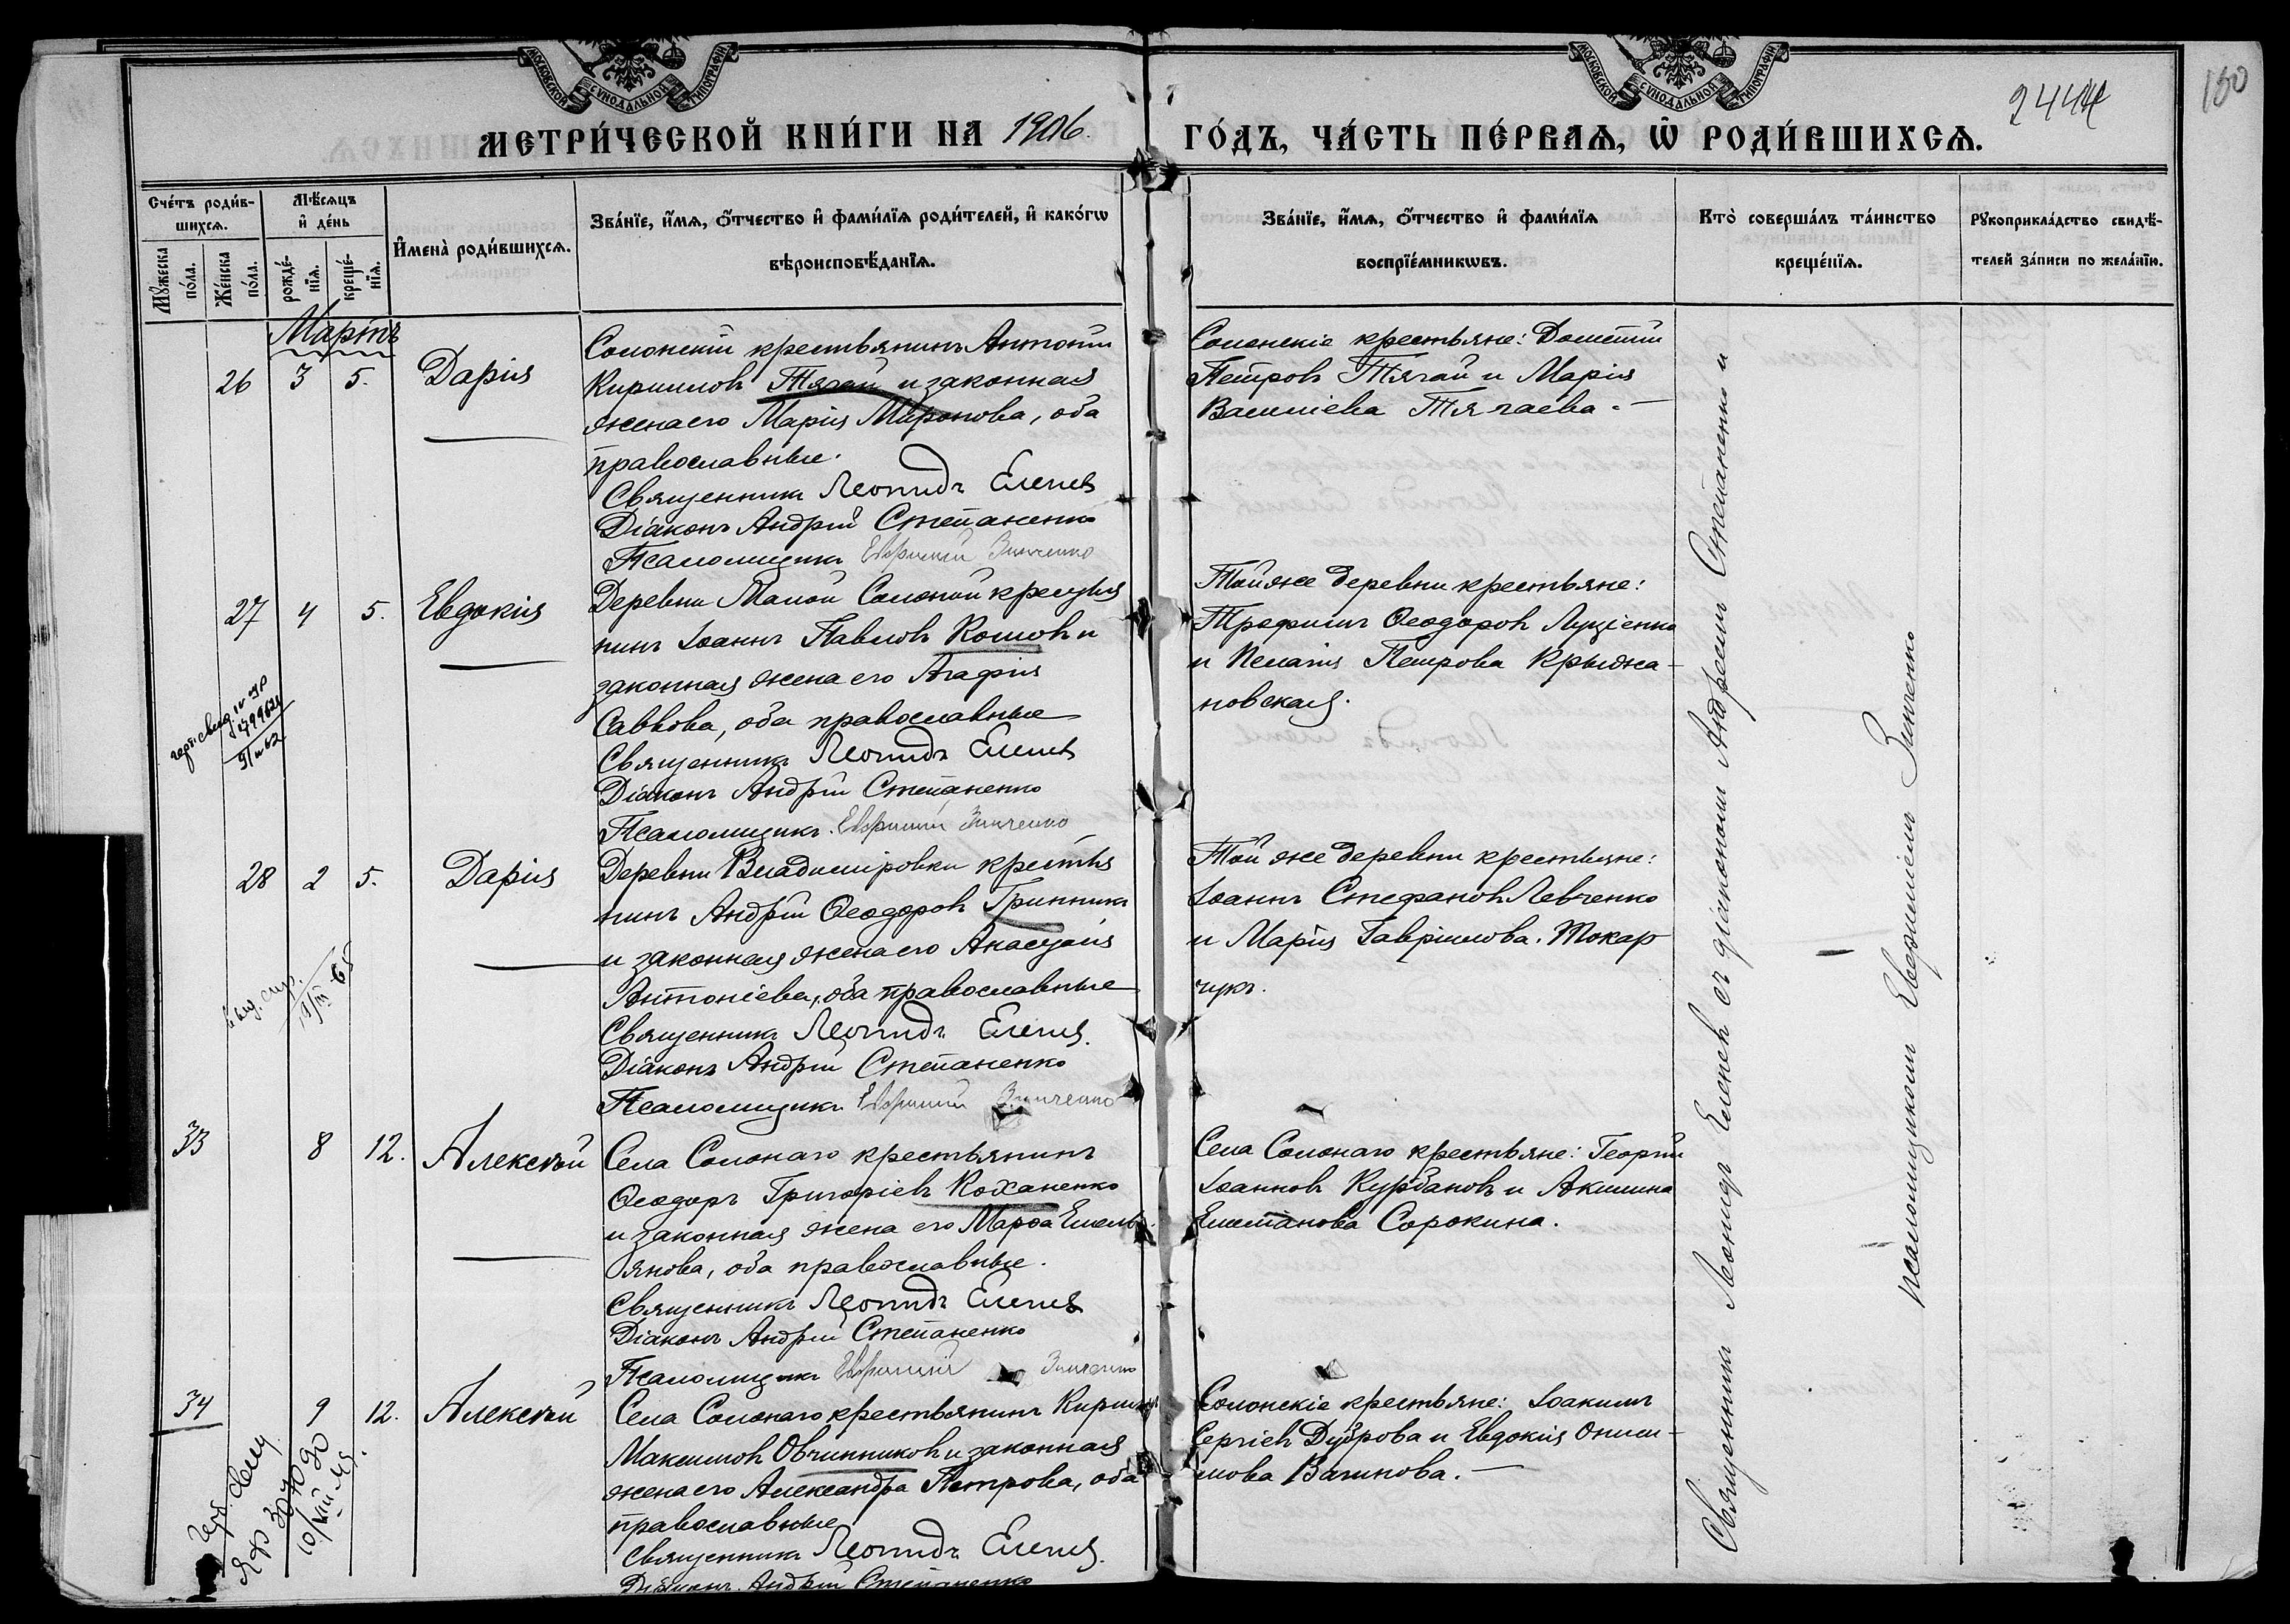 МОСКОВСКОЙ СѴНОДАЛЬНОЙ ТИПОГРАФІИ
МОСКОВСКОЙ СѴНОДАЛЬНОЙ ТИПОГРАФІИ
МЕТРИ́ЧЕСКОЙ КНИ́ГИ НА 1906.
ГО́ДЪ, ЧА́СТЬ ПЕ́РВАѦ, Ѽ РОДИ́ВШИХСѦ.
244
150
Сче́тъ роди́в-
шихсѧ.
Мѣ́сѧцъ
и҆ де́нь
Мꙋ́жеска
по́ла.
Же́нска
по́ла.
рожде́-
нїѧ.
креще́-
нїѧ.
И҆мена̀ роди́вшихсѧ.
Зва́нїе, и҆́мѧ, ѻ҆́тчество и҆ фами́лїѧ роди́телей, и҆ како́гѡ
вѣроисповѣ́данїѧ.
Зва́нїе, и҆́мѧ, ѻ҆́тчество и҆ фами́лїѧ
воспрїе́мникѡвъ.
Кто̀ соверша́лъ та́инство
креще́нїѧ.
Рꙋкоприкла́дство свидѣ́-
телей за́писи по жела́нїю.
Мартъ
26 3 5. Дарія
Солонскій крестьянинъ Антоній
Кирилловъ Тягай и законная
жена его Марія Миронова, оба
православные.
Священникъ Леонидъ Еленевъ
Діаконъ Андрій Степаненко
Псаломщикъ Евфимій Зинченко
Солонскіе крестьяне: Дометій
Петровъ Тягай и Марія
Василіева Тягаева.
27 4 5. Евдокія
Деревни Малой Солоной крестья
нинъ Іоаннъ Павловъ Кошовъ и
законная жена его Агафія
Саввова, оба православные
Священникъ Леонидъ Еленевъ
Діаконъ Андрій Степаненко
Псаломщикъ Евфимій Зинченко
Той же деревни крестьяне:
Трофимъ Ѳеодоровъ Луціенко
и Пелагія Петрова Крыжа-
новская.
28 2 5. Дарія
Деревни Владиміровки крестья
нинъ Андрій Ѳеодоровъ Гринникъ
и законная жена его Анастасія
Антоніева, оба православные
Священникъ Леонидъ Еленевъ
Діаконъ Андрій Степаненко
Псаломщикъ Евфимій Зинченко
Той же деревни крестьяне:
Іоаннъ Стефановъ Левченко
и Марія Гавріилова Токар
чукъ.
33 8 12. Алексѣй
Села Солонаго крестьянинъ
Ѳеодоръ Григоріевъ Коханенко
и законная жена его Марѳа Емель
янова, оба православные.
Священникъ Леонидъ Еленевъ
Діаконъ Андрій Степаненко
Псаломщикъ Евфимій Зинченко
Села Солонаго крестьяне: Георгій
Іоанновъ Курбановъ и Акилина
Сорокина.
34 9 12. Алексѣй
Села Солонаго крестьянинъ Кириллъ
Максимовъ Овчинниковъ и законная
жена его Александра Петрова, оба
православные
Священникъ Леонидъ Еленевъ
Діаконъ Андрій Степаненко
Солонскіе крестьяне: Іоакимъ
Сергіевъ Дуброва и Евдокія Ониси-
мова Вагинова.
Священникъ Леонидъ Еленевъ съ діакономъ Андреемъ Степаненко и
псаломщикомъ Евфиміемъ Зинченко